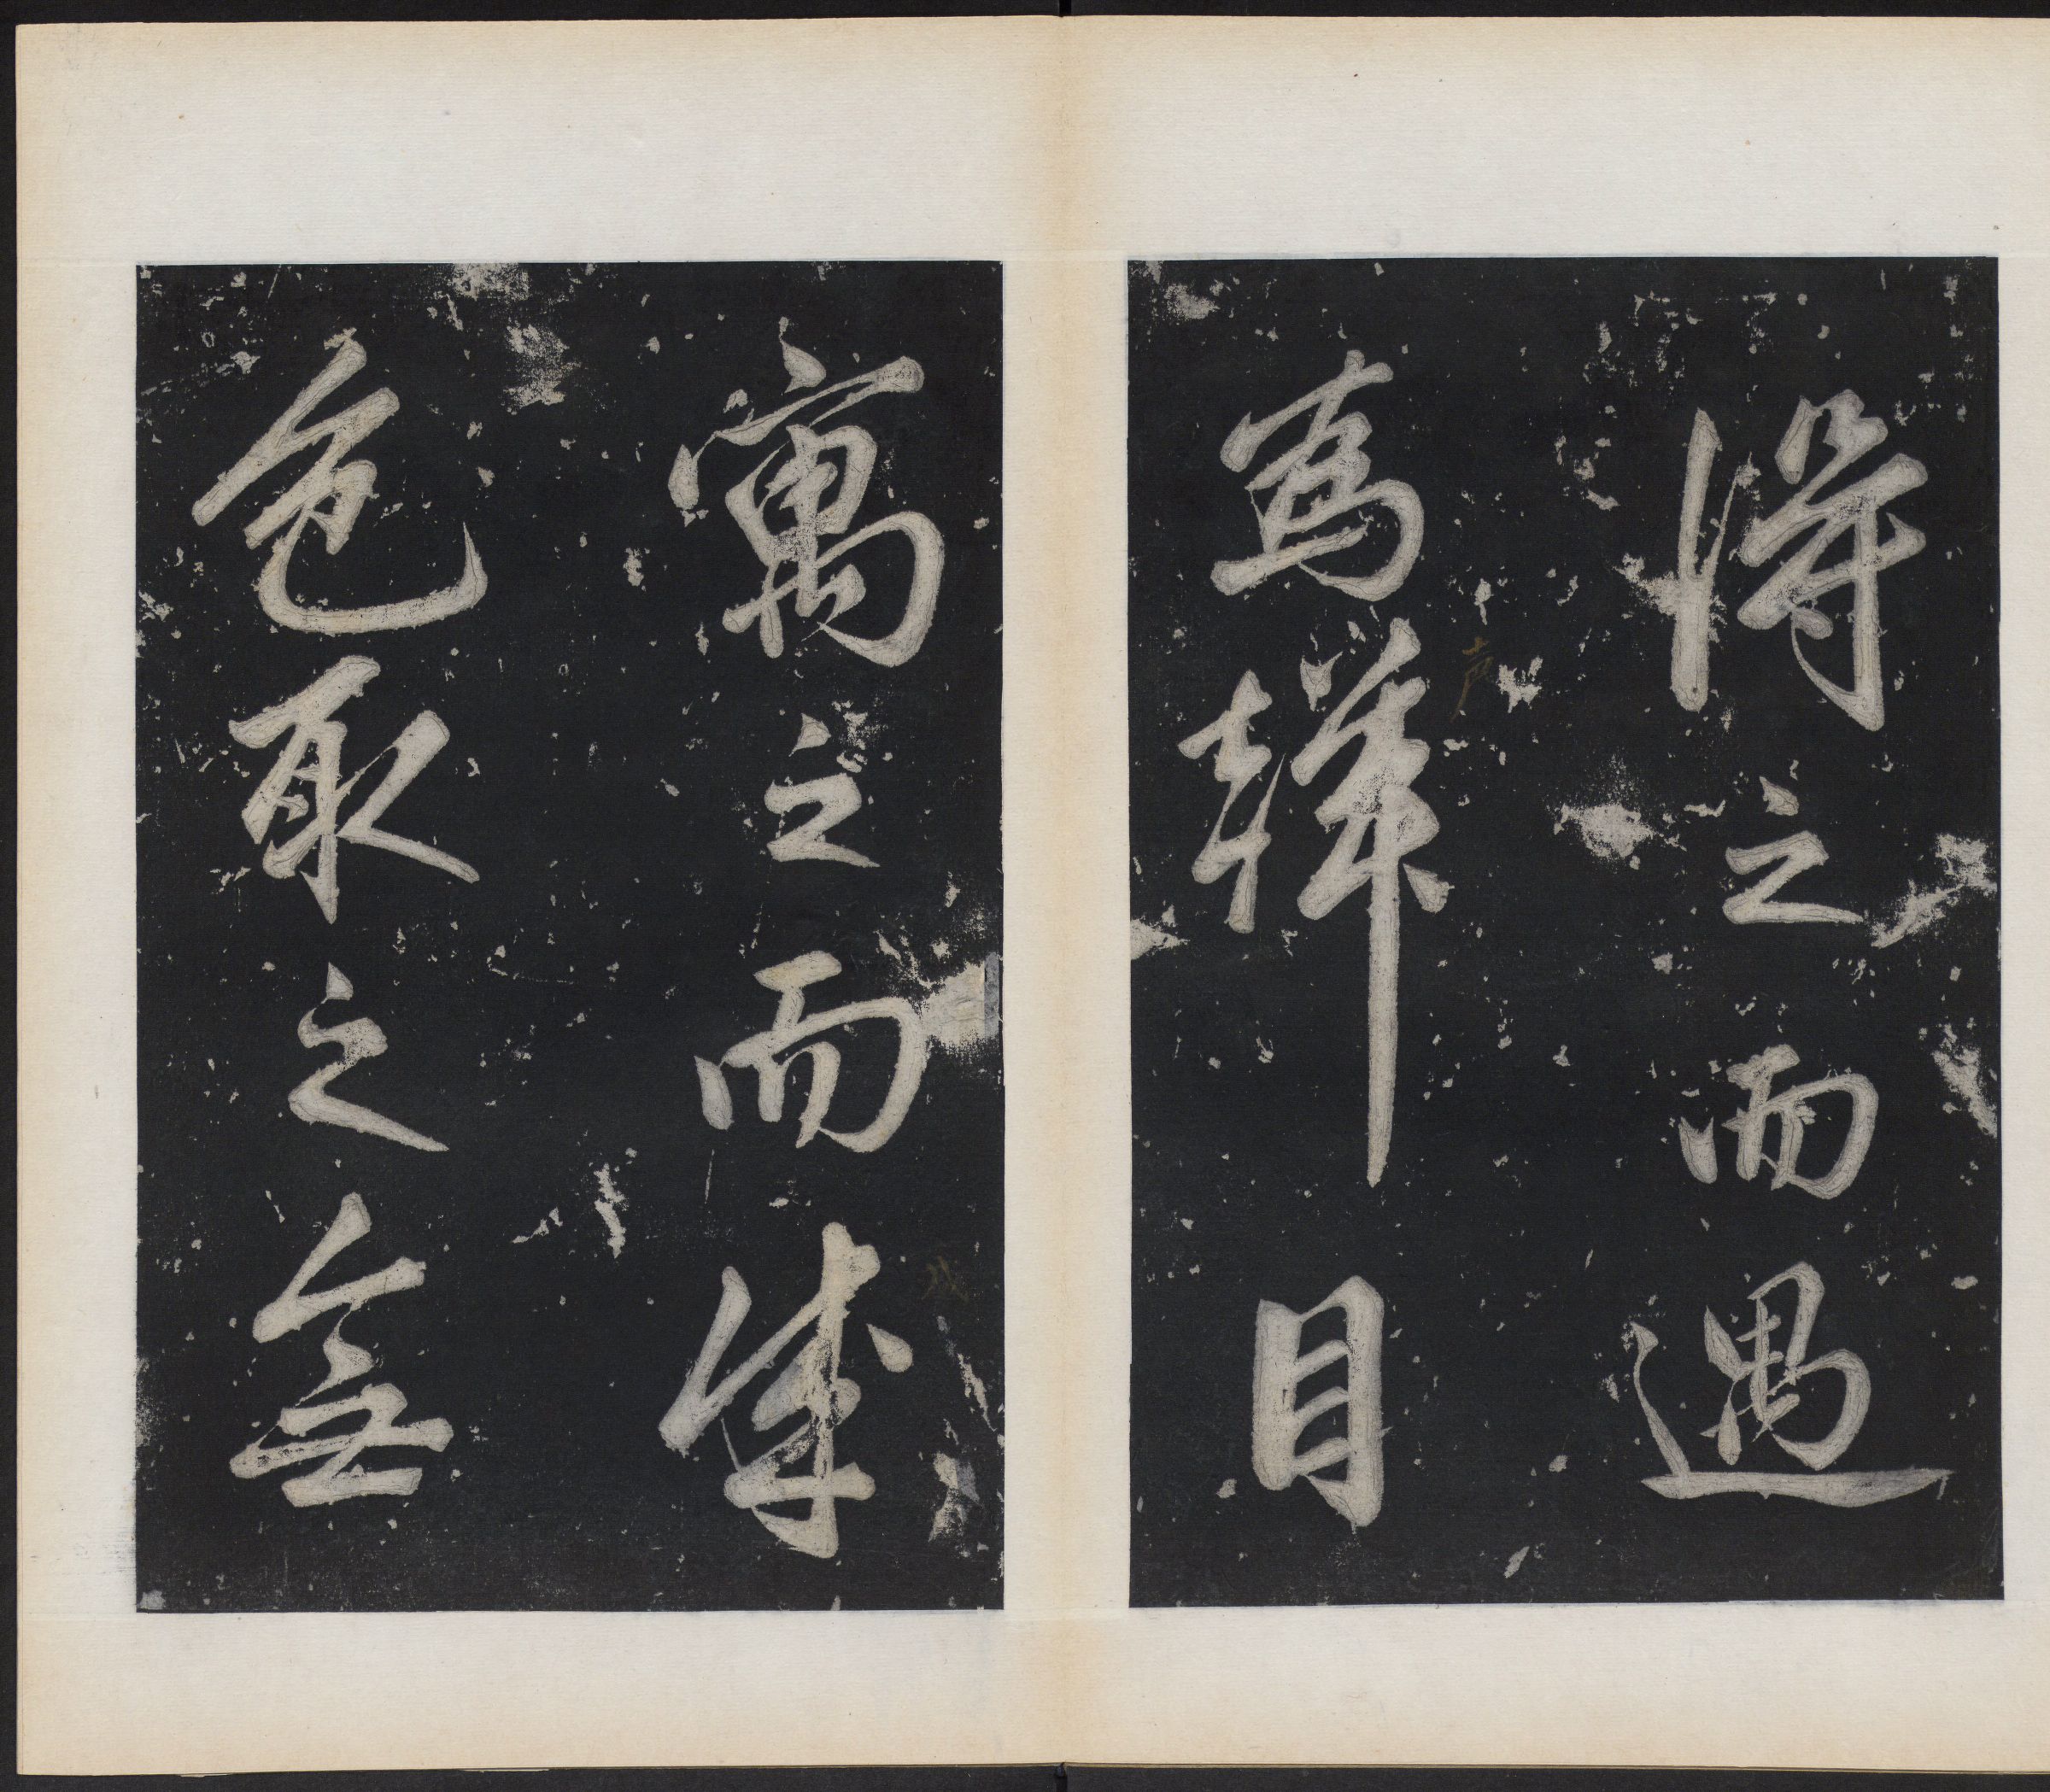 得之而遇
為聲目
声
寓之而成
成
色取之無